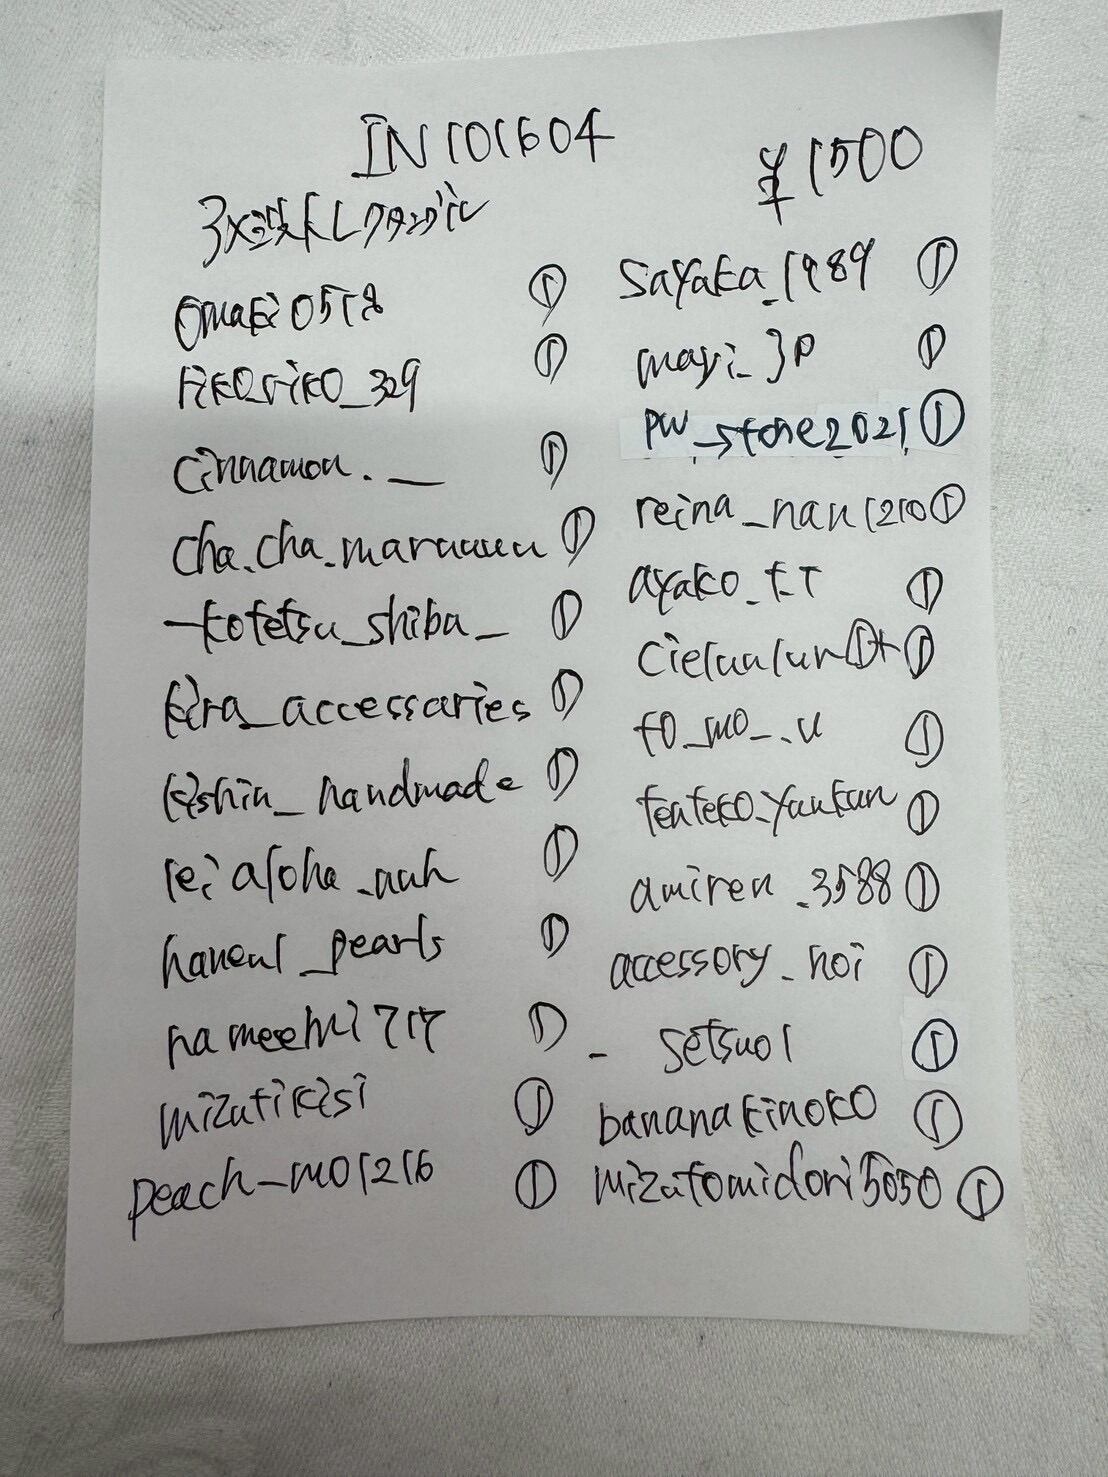 IN101604
¥1500
omaki0518 ①
riko_riko_329 ①
cinnamon._ ①
cha.cha.maruuuu ①
_kotetsu_shiba_ ①
kira_accessaries ①
kishin_handmade ①
leialoha_nuh ①
haneul_pearls ①
nameemi717 ①
mizutikisi ①
peach_mo1216 ①
sayaka_1989 ①
mayi_jp ①
pw_stone2021 ①
reina_nan1210 ①
ayako_t.t ①
①+①
to_mo_.u ①
tenteko_yankan ①
amiren_3588 ①
accessory_noi ①
_setsuo1 ①
bananakinoko ①
mizutomidori5050 ①